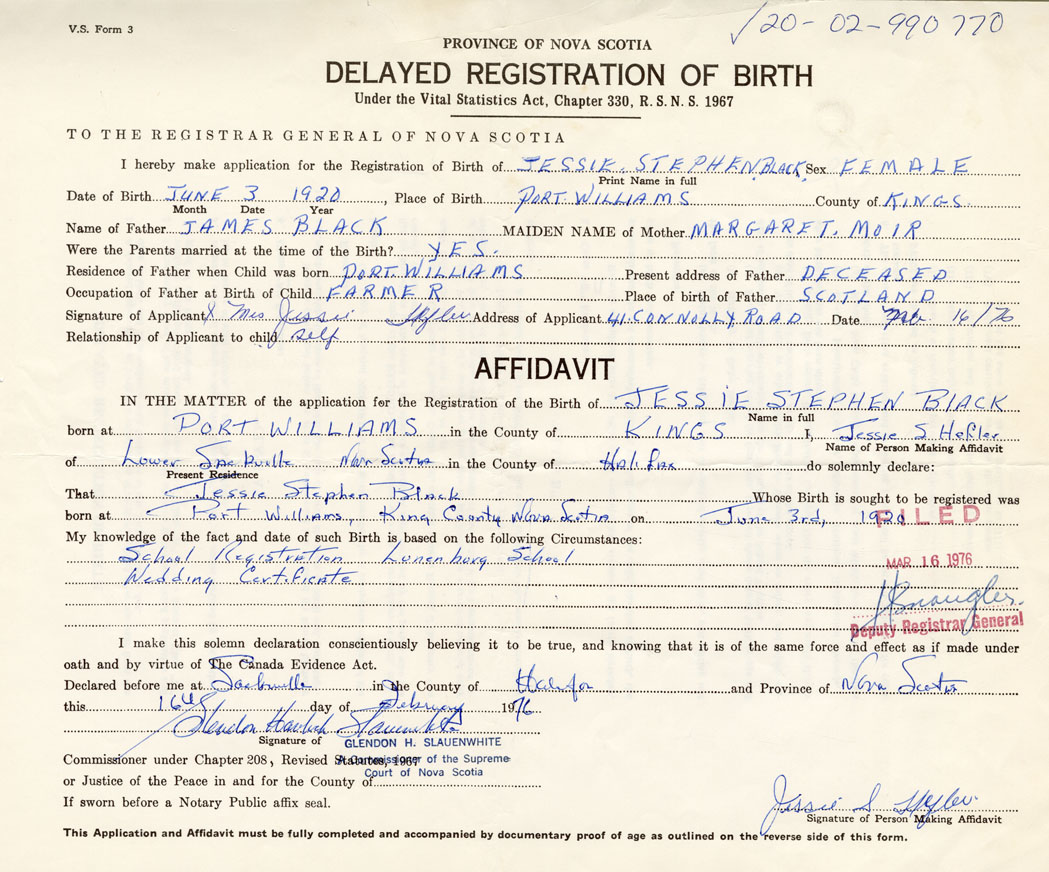 V.S. Form 3
√20-02-990770
PROVINCE OF NOVA SCOTIA
DELAYED REGISTRATION OF BIRTH
Under the Vital Statistics Act, Chapter 330, R.S.N.S. 1967
TO THE REGISTRAR GENERAL OF NOVA SCOTIA
I hereby make application for the Registration of Birth of JESSIE STEPHEN BLACK Sex FEMALE
Print Name in full
Date of Birth JUNE 3 1920, Place of Birth PORT WILLIAMS County of KINGS.
Month Date Year
Name of Father JAMES BLACK MAIDEN NAME of Mother MARGARET. MOIR
Were the Parents married at the time of the Birth? YES.
Residence of Father when Child was born PORT WILLIAMS Present address of Father DECEASED
Occupation of Father at Birth of Child FARMER Place of birth of Father SCOTLAND
Signature of Applicant X Mrs Jessie Hefler Address of Applicant 41 CONNOLLY ROAD Date Feb 16/76
Relationship of Applicant to child self
AFFIDAVIT
IN THE MATTER of the application fer the Registration of the Birth of JESSiE STEPHEN BlACK
Name in full
born at PORT WILLIAMS in the County of KINGS I, Jessie S Hefler
Name of Person Making Affidavit
of Lower Sackville Nova Scotia in the County of Halifax do solemnly declare:
Present Residence
That Jessie Stephen Black Whose Birth is sought to be registered was
born at Port Williams, King County Nova Scotia on June 3rd, 1920
FILED
My knowledge of the fact and date of such Birth is based on the following Circumstances:
School Registration Lunenburg School
MAR 16 1976
Wedding Certificate
Deputy Registrar General
I make this solemn declaration conscientiously believing it to be true, and knowing that it is of the same force and effect as if made under
oath and by virtue of The Canada Evidence Act.
Declared before me at Sackville in the County of Halifax and Province of Nova Scotia
this 16th day of February 1976
Glendon Havelock Slauenwhite
Signature of GLENDON H. SLAUENWHITE
Commissioner under Chapter 208, Revised Statutes, 1967
A Commissioner of the Supreme
Court of Nova Scotia
or Justice of the Peace in and for the County of
If sworn before a Notary Public affix seal.
Jessie S Hefler
Signature of Person Making Affidavit
This Application and Affidavit must be fully completed and accompanied by documentary proof of age as outlined on the reverse side of this form.